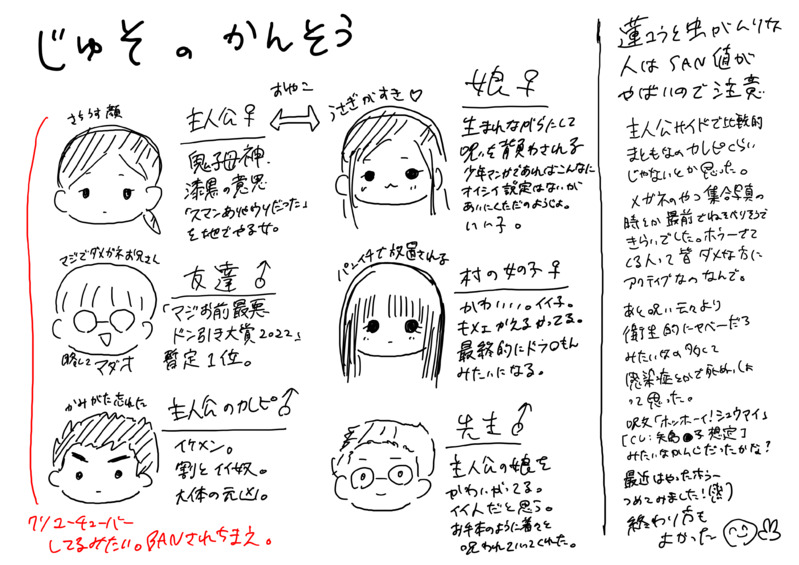 じゅその かんそう
さちうす顔
主人公♀
鬼子母神
漆黒の意思
「スマンありゃウソだった」
を地でやる女。
おやこ
うさぎがすき♡
娘♀
生まれながらにして
呪いを背負わされる子
少年マンガであればこんなに
オイシイ設定はないが
あいにくただのようじょ。
いい子。
マジでダメガネお兄さん
略して マダオ
友達♂
「マジお前最悪
ドン引き大賞2022」
暫定1位。
パンイチで放置される
村の女の子♀
かわいい。イイ子。
モメェかえるかってる。
最終的にドラ○もん
みたいになる。
かみがた忘れた
主人公のカレピ♂
イケメン。
割とイイ奴。
大体の元凶。
先生♂
主人公の娘を
かわいがってる。
イイ人だと思う。
お手本のように着々と
呪われていってくれた。
クソユーチューバー
してるみたい。BANされちまえ。
蓮コラと虫がムリな
人はSAN値が
やばいので注意
主人公サイドで比較的
まともなのカレピくらい
じゃないかと思った。
メガネのやつ集合写真の
時とか最前でねそべりそうで
きらいでした。ホラーさで
くる人って皆ダメな方に
アクティブなのなんで。
あと呪い云々より
衛生的にヤベーだろ
みたいなの多くて
感染症とかで死ぬっしょ
って思った。
呪文「ホッホーイ!シュウマイ」
みたいなかんじだったかな?
最近はやったホラー
つめてみました!(笑)
終わり方も
よかった